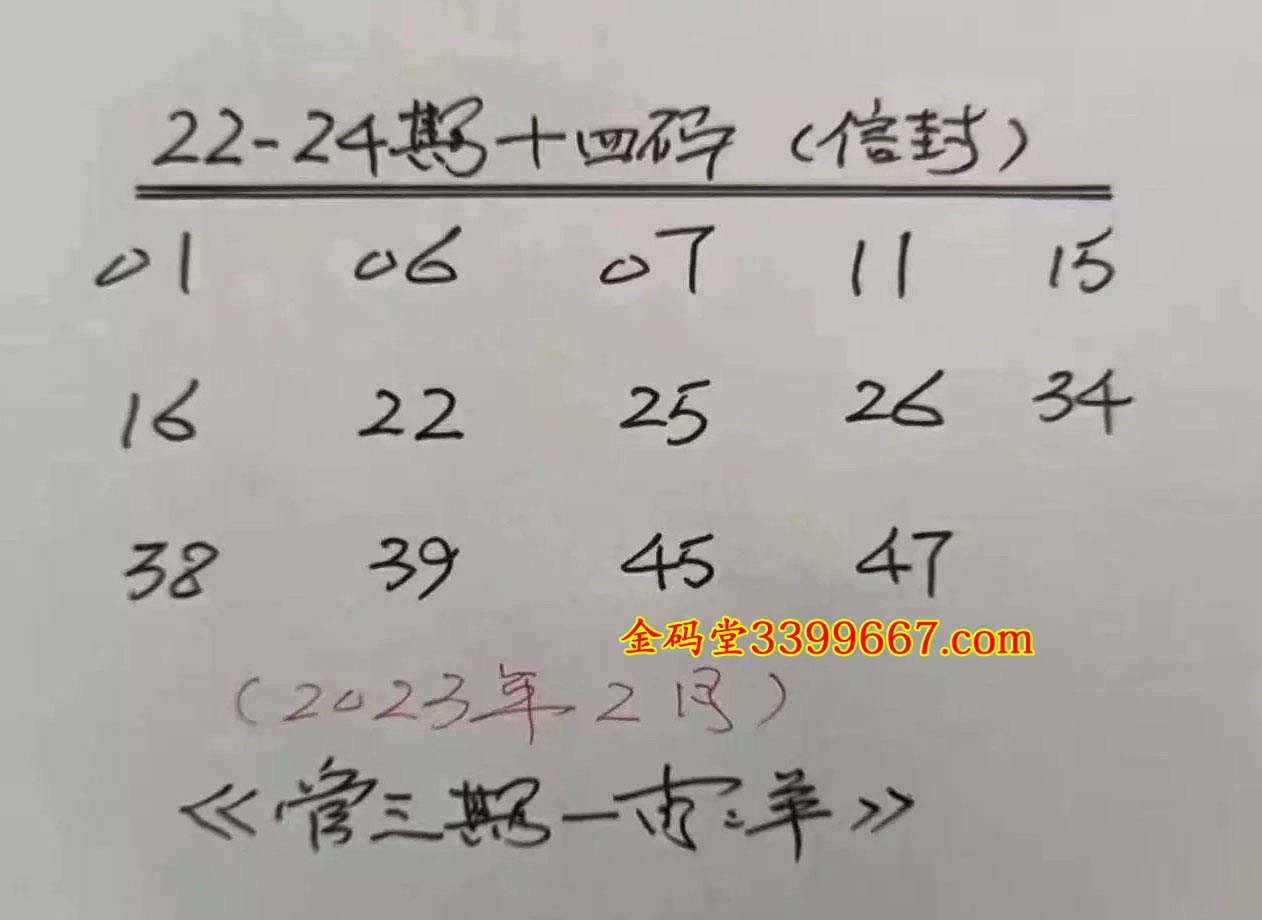 22-24期十四码（信封）
01 06 07 11 15
16 22 25 26 34
38 39 45 47
金码堂3399667.com
（2023年2月）
《管三期一肖:羊》